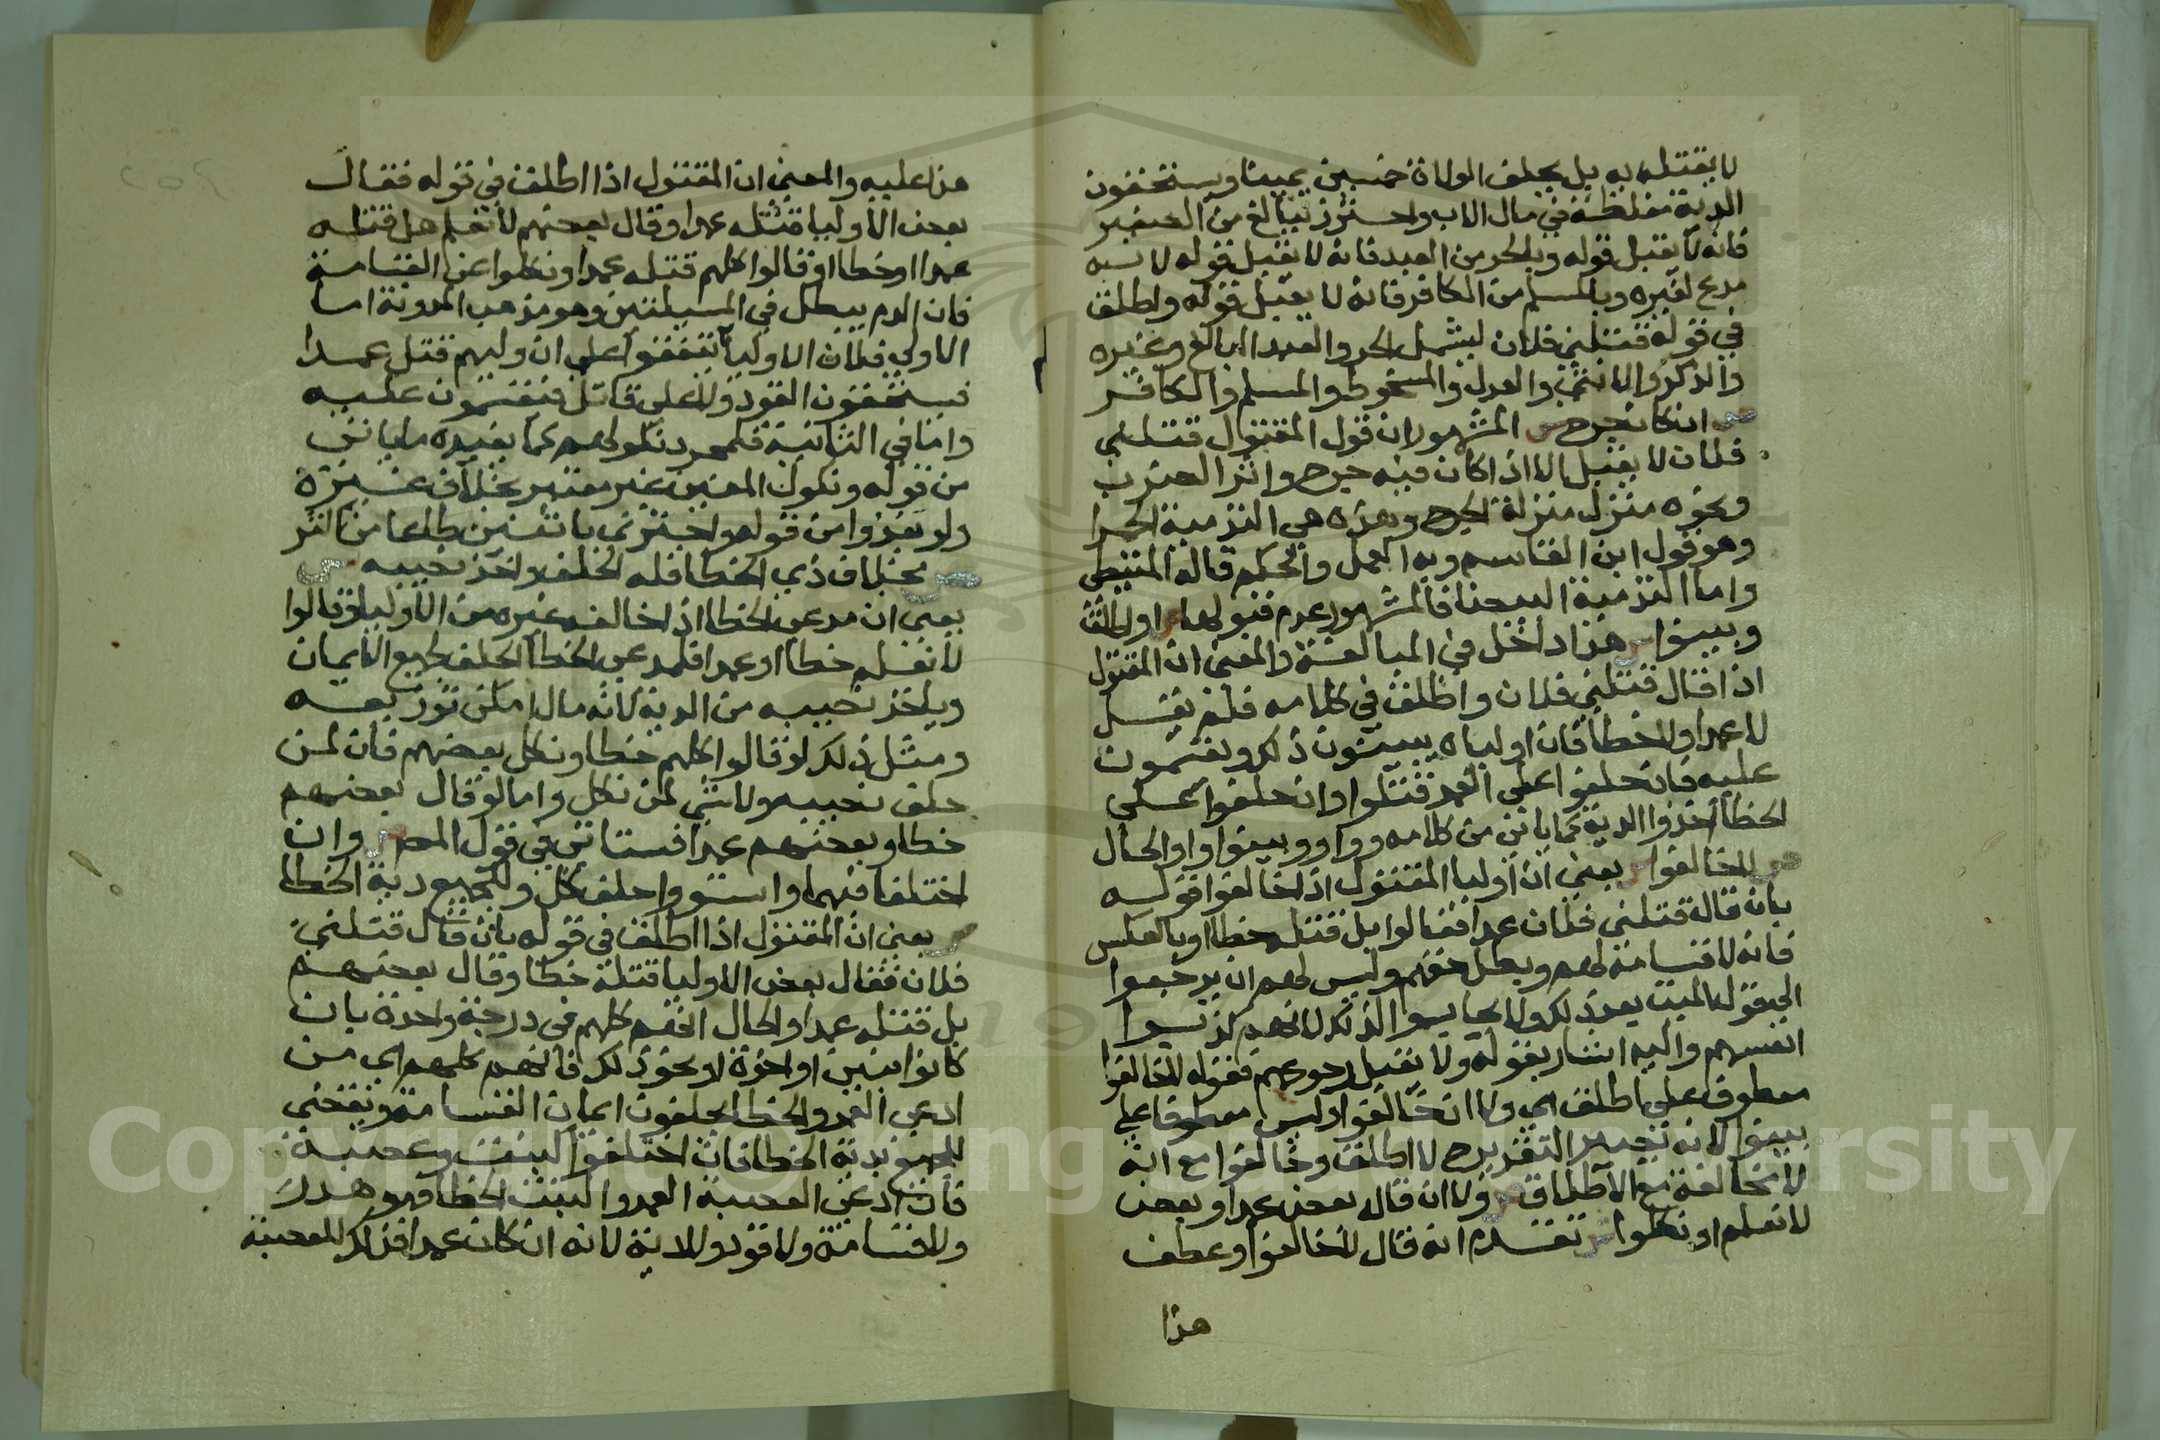 لا يقتل به بل يحلف الولاة خمسين يمينا ويستحقون
الدية مغلظة في مال الاب واحترز ببالغ من الصغير
فانه لا يقبل قوله وبالحر من العبد فانه لا يقبل قوله لانه
مدع لغيره وبالمسلم من الكافر فانه لا يقبل قوله واطلق
في قوله قتلني فلان ليشمل الحر والعبد البالغ وغيره
والذكر والانثى والعدل والمسخوط والمسلم والكافر
ص ان كان جرح ش المشهور ان قول المقتول قتلني
فلان لا يقبل الا اذا كان فيه جرح واثر الضرب
ونحوه منزل منزلة الجرح وهذه هي التدمية الحمرا
وهو قول ابن القاسم وبه العمل والحكم قاله المتيطي
واما التدمية البيضا فالمشهور عدم قبولها ص او اطلق
وبينوا ش هذا داخل في المبالغة والمعنى ان المقتول
اذا قال قتلني فلان واطلق في كلامه فلم يقل
لا عمدا ولا خطا فان اولياه يبينون ذلك ويقسمون
عليه فان حلفوا على العمد قتلوا وان حلفوا على
الخطا اخذوا الدية كما ياتي من كلامه وواو وبينوا واو الحال
ص لا خالفوا ش يعني ان اوليا المقتول اذا خالفوا قوله
بان قال قتلني فلان عمدا فقالوا بل قتله خطا او بالعكس
فانه لا قسامة لهم وبطل حقهم وليس لهم ان يرجعوا
الى قول الميت بعد ذلك ولا يجابوا لذلك لانهم كذبوا
انفسهم واليه اشار بقوله ولا يقبل رجوعهم فقوله لا خالفوا
معطوف على اطلق اي ولا ان خالفوا وليس معطوفا على
بينوا لانه يصير التقدير لا اطلق وخالفوا مع انه
لا مخالفة مع الاطلاق ص ولا ان قال بعض عمدا وبعض
لا نعلم او نكلوا ش تقدم انه قال لا خالفوا وعطف
هذا
هذا عليه والمعنى ان المقتول اذا اطلق في قوله فقال
بعض الاوليا قتله عمدا وقال بعضهم لا نعلم هل قتله
عمدا او خطا او قالوا كلهم قتله عمدا ونكلوا عن القسامة
فان الدم يبطل في المسيلتين وهو مذهب المدونة اما
الاولى فلان الاوليا لم يتفقوا على ان وليهم قتل عمدا
فيستحقون القود ولا على قاتل فيقسمون عليه
واما في الثانية فلمجرد نكولهم كما يفيده ما ياتي
من قوله ونكول المعين غير معتبر بخلاف غيره
ولو بعدوا من قوله واجتزئ باثنين طاعا من اكثر
ص بخلاف ذي الخطا فله الحلف واخذ نصيبه ش
يعني ان مدعي الخطا اذا خالفه غيره من الاوليا وقالوا
لا نعلم خطا او عمدا فلمدعي الخطا الحلف لجميع الايمان
وياخذ نصيبه من الدية لانه مال امكن توزيعه
ومثل ذلك لو قالوا كلهم خطا ونكل بعضهم فان لمن
حلف نصيبه ولا شي لمن نكل واما لو قال بعضهم
خطا وبعضهم عمدا فستاتي في قول المص وان
اختلفا فيهما واستووا حلف كل وللجميع دية الخطا
ش يعني ان المقتول اذا اطلق في قوله بان قال قتلني
فلان فقال بعض الاوليا قتله خطا وقال بعضهم
بل قتله عمدا والحال انهم كلهم في درجة واحدة بان
كانوا بنين او اخوة او نحو ذلك فانهم كلهم اي من
ادعى العمد والخطا يحلفون ايمان القسامة ويقضى
للجميع بدية الخطا فان اختلفوا كبنت وعصبة
فان ادعى العصبة العمد والبنت الخطا فهو هدر
ولا قسامة ولا قود ولا دية لانه ان كان عمدا فذلك للعصبة
Copyright © King Saud University